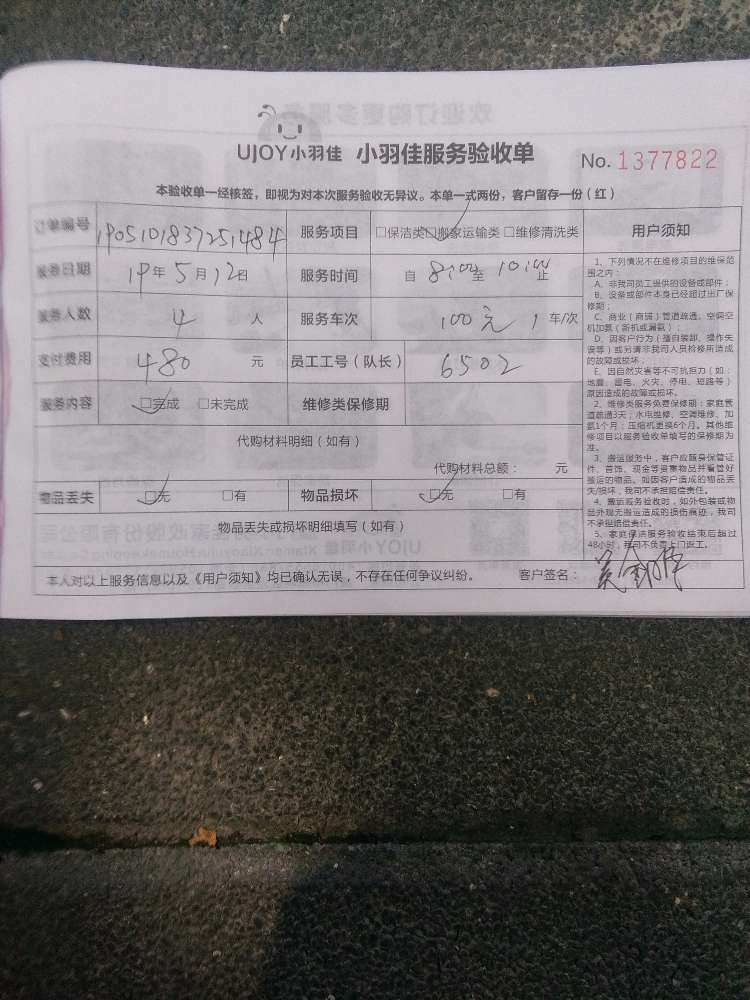 UJOY小羽佳 小羽佳服务验收单 No. 1377822
本验收单一经核签，即视为对本次服务验收无异议。本单一式两份，客户留存一份（红）
订单编号 1905101837251484 服务项目 □保洁类□搬家运输类 □维修清洗类
服务日期 19年5月12日 服务时间 自 8:00至 10:00止
服务人数 4 人 服务车次 100元 1 车/次
支付费用 480 元 员工工号（队长） 6502
服务内容 □完成 □未完成 维修类保修期
代购材料明细（如有）
代购材料总额： 元
物品丢失 □无 □有 物品损坏 □无 □有
物品丢失或损坏明细填写（如有）
用户须知
1、下列情况不在维修项目的维保范
围之内：
A、非我司员工提供的设备或部件；
B、设备或部件本身已经超过出厂保
修期；
C、商业（商铺）管道疏通、空调空
机加氟（新机或漏氟）；
D、因客户行为（擅自装卸、操作失
误等）或另请非我司人员检修所造成
的故障或损坏；
E、因自然灾害等不可抗拒力（如：
地震、雷电、火灾、停电、短路等）
原因造成的故障或损坏。
2、维修类服务免费保修期：家庭管
道疏通3天；水电维修、空调维修、加
氟1个月；压缩机更换6个月。其他维
修项目以服务验收单填写的保修期为
准。
3、搬运服务中，客户应随身保管证
件、首饰、现金等贵重物品并看管好
搬运的物品。如因客户造成的物品丢
失/损坏，我司不承担赔偿责任。
4、搬运服务验收时，如外包装或物
品外观无搬运造成的损伤痕迹，我司
不承担赔偿责任。
5、家庭保洁服务验收结束后超过
48小时，我司不负责上门返工。
本人对以上服务信息以及《用户须知》均已确认无误，不存在任何争议纠纷。 客户签名：